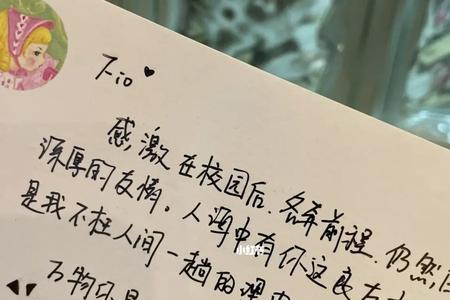 Fio
感激在校园后.各奔前程.仍然
深厚的友情。人海中有你这良
小红书
是我不枉人间一趟的理
万物